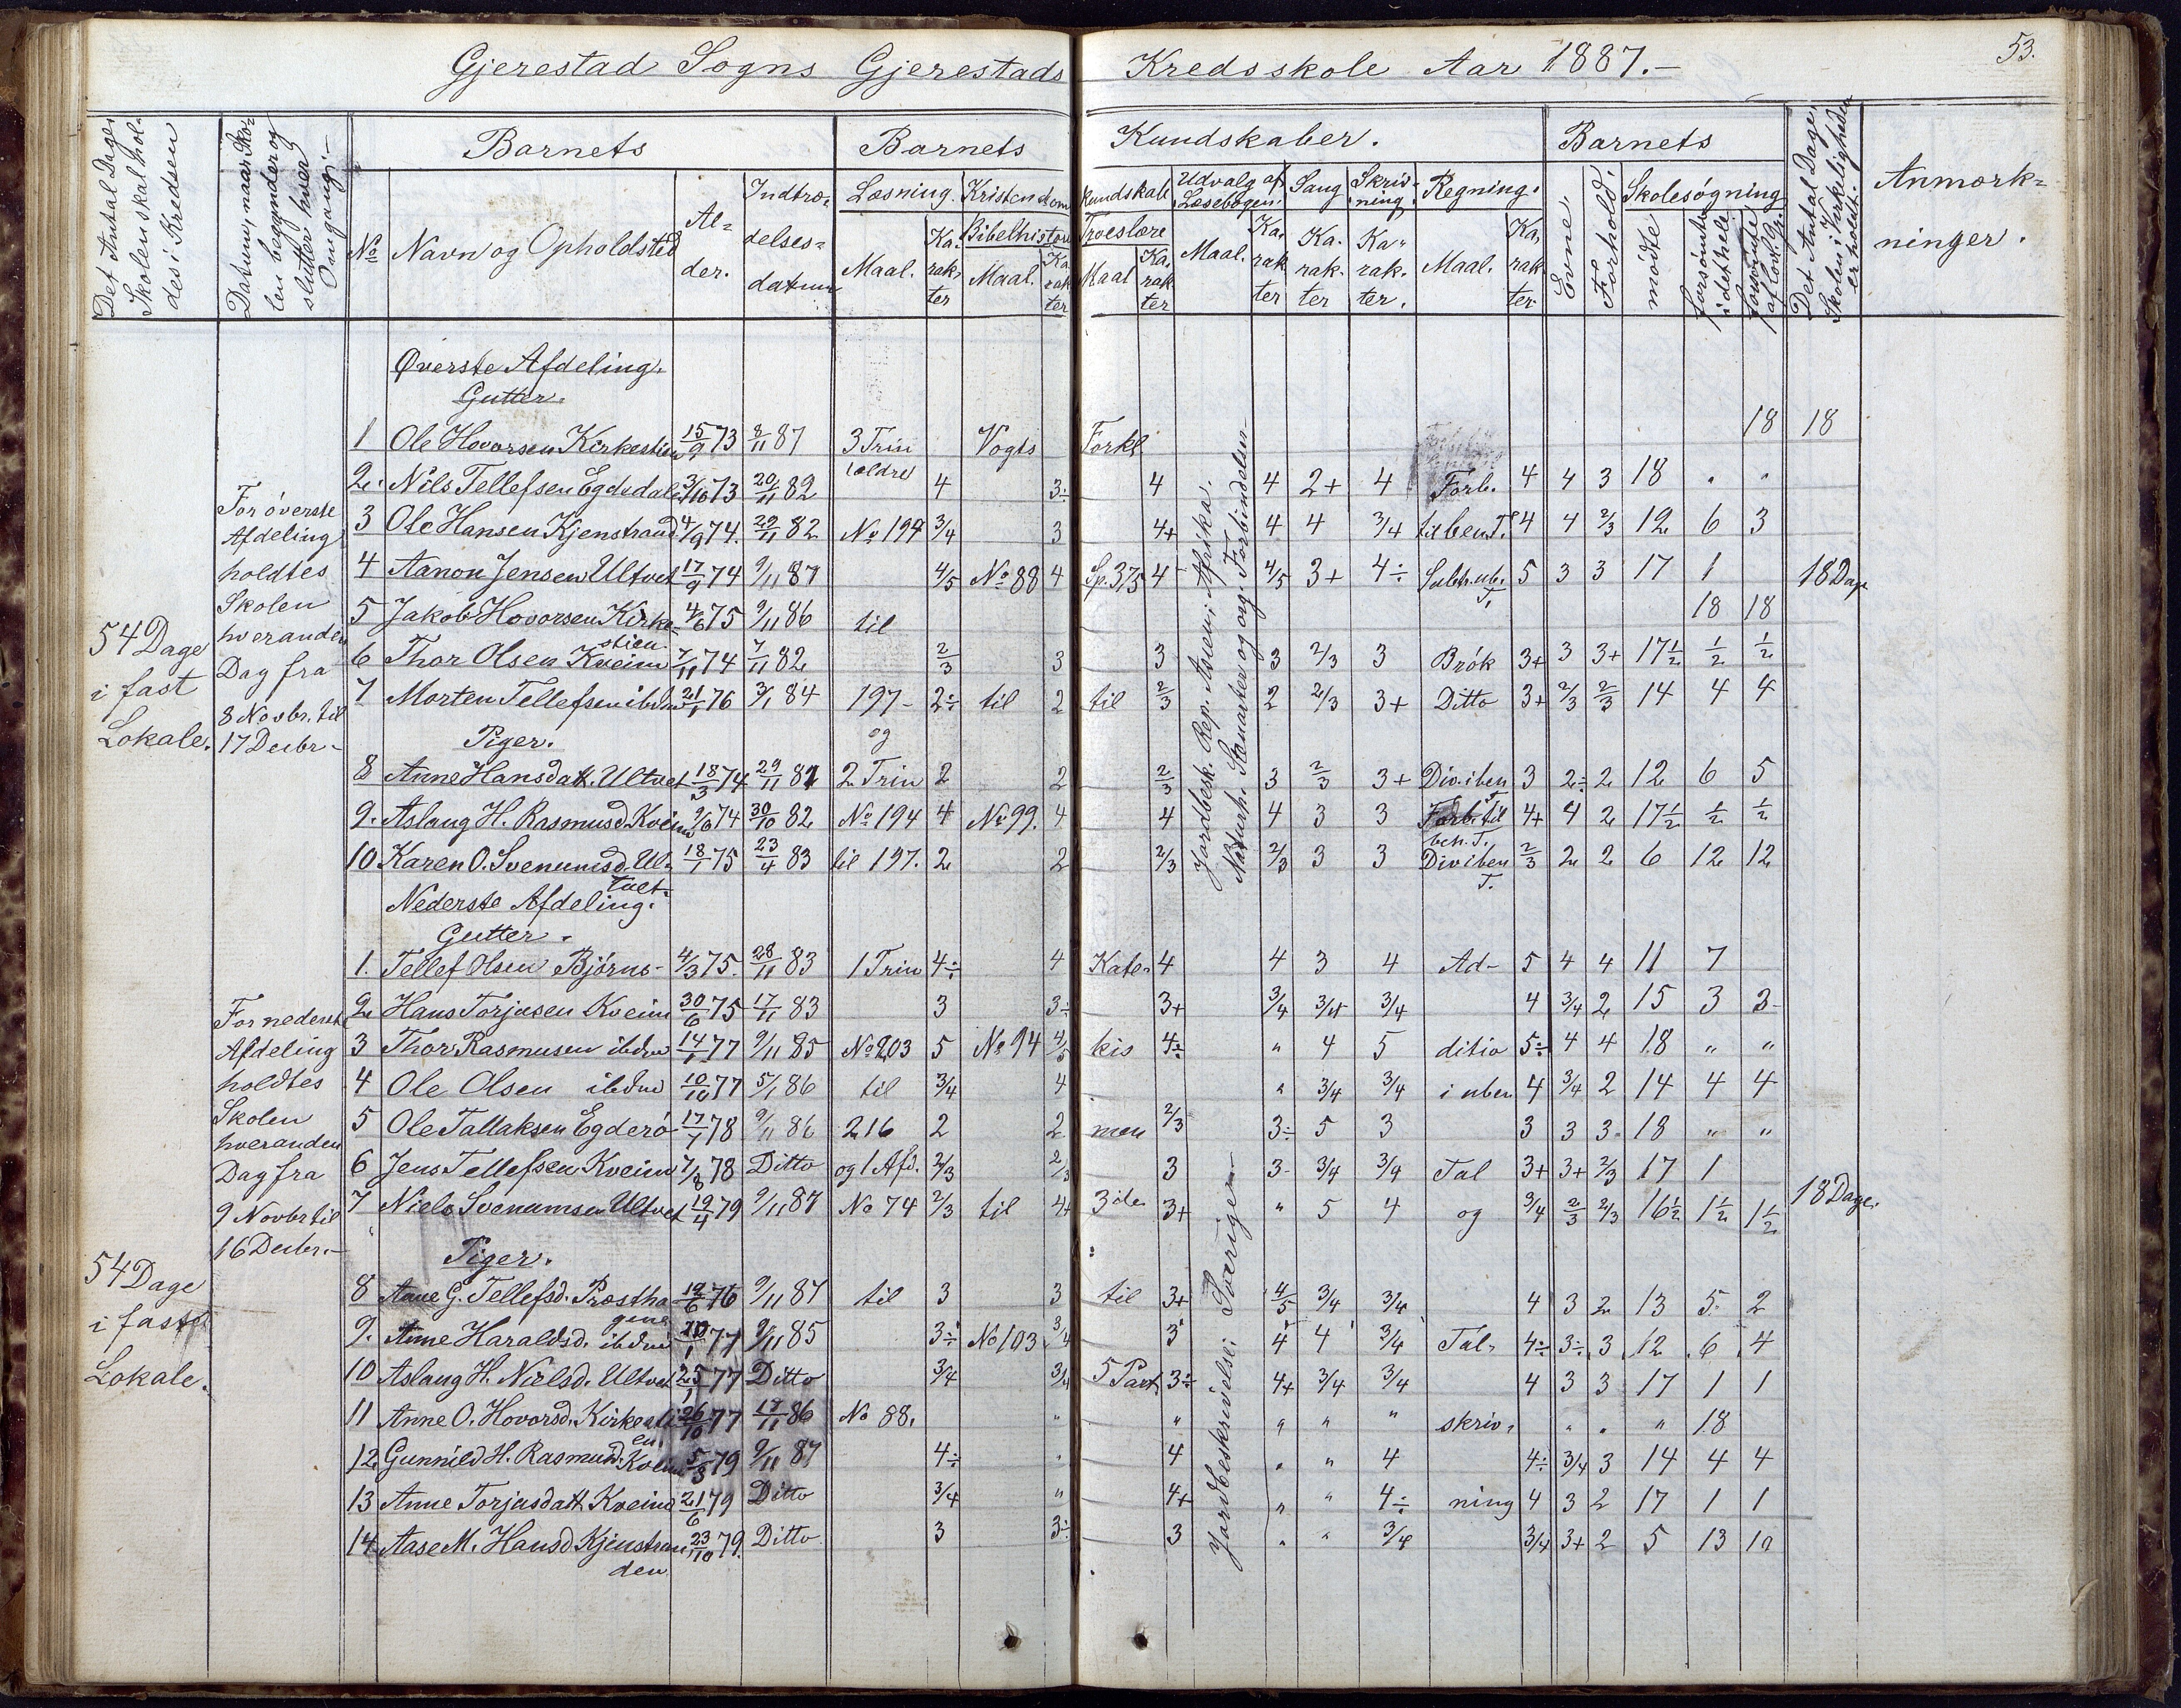 Gjerestad Sogns Gjerestads Kredsskole Aar 1887.- 53.
Det Antal Dage Skolen skal holdes i Kredsen
Datum, naar Skolen begynder og slutter hver Omgang.-
Barnets
Barnets
Kundskaber.
Barnets
Det Antal Dage, Skolen i Virkeligheden er holdt.
Anmærkninger.
No Navn og Opholdsted Alder. Indtrædelsesdatum
Læsning. Maal. Karakter
Kristendomskundskab
Bibelhistorie Maal. Karakter
Troeslære Maal Karakter
Udvalg af Læsebogen. Maal. Karakter
Sang Karakter
Skrivning Karakter.
Regning. Maal. Karakter
Evne. Forhold.
Skolesøgning mødte forsømte i det hele forsømte af lovl. G.
54 Dage
i fast
Lokale.
For øverste
Afdeling
holdtes
Skolen
hveranden
Dag fra
8 Novbr. til
17 Decbr.-
Øverste Afdeling.
Gutter.
1 Ole Hovorsen Kirkestien 15/9 73 8/11 87 3 Trin Vogts Forkl 18 18
2. Nils Tellefsen Egdedalen 3/10 73 20/11 82 ældre 4 3÷ 4 4 2+ 4 Forb. 4 4 3 18 " "
3 Ole Hansen Kjenstrand 4/9 74. 29/11 82 No 194 3/4 3 4+ 4 4 3/4 til ben. T. 4 4 2/3 12 6 3
4 Aanon Jensen Ultvet 17/9 74 9/11 87 4/5 No 88 4 Sp. 375 4 4/5 3+ 4÷ Subtr. ub. T. 5 3 3 17 1 18 Dage
5 Jakob Hovorsen Kirkestien 4/6 75 9/11 86 til 18 18
6 Thor Olsen Kveim 7/11 74 7/11 82 2/3 3 3 3 2/3 3 Brøk 3+ 3 3+ 17½ ½ ½
7 Morten Tellefsen ibdm 21/1 76 3/1 84 197- 2÷ til 2 til 2/3 2 2/3 3+ Ditto 3+ 2/3 2/3 14 4 4
Piger. og
8 Anne Hansdatt. Ultvet 18/3 74 29/11 81 2 Trin 2 2 2/3 3 2/3 3+ Div. i ben T. 3 2÷ 2 12 6 5
9. Aslaug H. Rasmusd. Kveim 9/6 74 30/10 82 No 194 4 No 99. 4 4 4 3 3 Forb. til ben. T. 4+ 4 2 17½ ½ ½
10 Karen O. Svenumsd. Ultvet. 18/1 75 23/4 83 til 197. 2 2 2/3 2/3 3 3 Div i ben T. 2/3 2 2 6 12 12
Jordbesk. Rep. Asien i Afrika.
Naturh. Stenarter og org. Forbindelser
Nederste Afdeling.
Gutter.
For nederste
Afdeling
holdtes
Skolen
hveranden
Dag fra
9 Novbr til
16 Decbr.-
54 Dage
i fast
Lokale.
1. Tellef Olsen Bjørns- 4/3 75. 28/11 83 1 Trin 4÷ 4 Kate- 4 4 3 4 Ad- 5 4 4 11 7
2 Hans Torjusen Kveim 30/6 75 17/11 83 3 3÷ 3+ 3/4 3/4 3/4 4 3/4 2 15 3 3-
3 Thor Rasmusen ibdm 14/1 77 9/11 85 No 203 5 No 94 4/5 kis 4÷ " 4 5 ditio 5÷ 4 4 18 " "
4 Ole Olsen ibdm 10/10 77 5/1 86 til 3/4 4 " 3/4 3/4 i uben 4 3/4 2 14 4 4
5 Ole Tallaksen Egderø 17/1 78 9/11 86 216 2 2 men 2/3 3÷ 5 3 3 3 3- 18 " "
6 Jens Tellefsen Kveim 7/8 78 Ditto og 1 Afd. 2/3 2/3 3 3- 3/4 3/4 Tal 3+ 3+ 2/3 17 1
7 Niels Svenumsen Ultvet 19/4 79 9/11 87 No 74 2/3 til 4+ 3de 3+ " 5 4 og 3/4 2/3 2/3 16½ 1½ 1½ 18 Dage.
Piger.
8 Anne G. Tellefsd. Præsthagene 19/6 76 9/11 87 til 3 3 til 3+ 4/5 3/4 3/4 4 3 2 13 5 2
9. Anne Haraldsd. ibdm 20/1 77 9/11 85 3÷ No 103 3/4 3 4 4 3/4 Tal- 4÷ 3÷ 3 12 6 4
10 Aslaug H. Nielsd. Ultvet 25/1 77 Ditto 3/4 3/4 5 Part 3÷ 4+ 3/4 3/4 4 3 3 17 1 1
11 Anne O. Hovorsd. Kirkestien. 26/10 77 17/11 86 No 88. " " " " " skriv- " " " 18
12 Gunnild H. Rasmusd. Kveim 5/3 79 9/11 87 4÷ " 4 " " 4 4÷ 3/4 3 14 4 4
13 Anne Torjusdatt Kveim 21/6 79 Ditto 3/4 " 4+ " " 4÷ ning 4 3 2 17 1 1
14 Aase M. Hansd Kjenstranden 23/10 79. Ditto 3 3÷ 3 " " 3/4 3/4 3+ 2 5 13 10
Jordbeskrivelse i Sverige.-